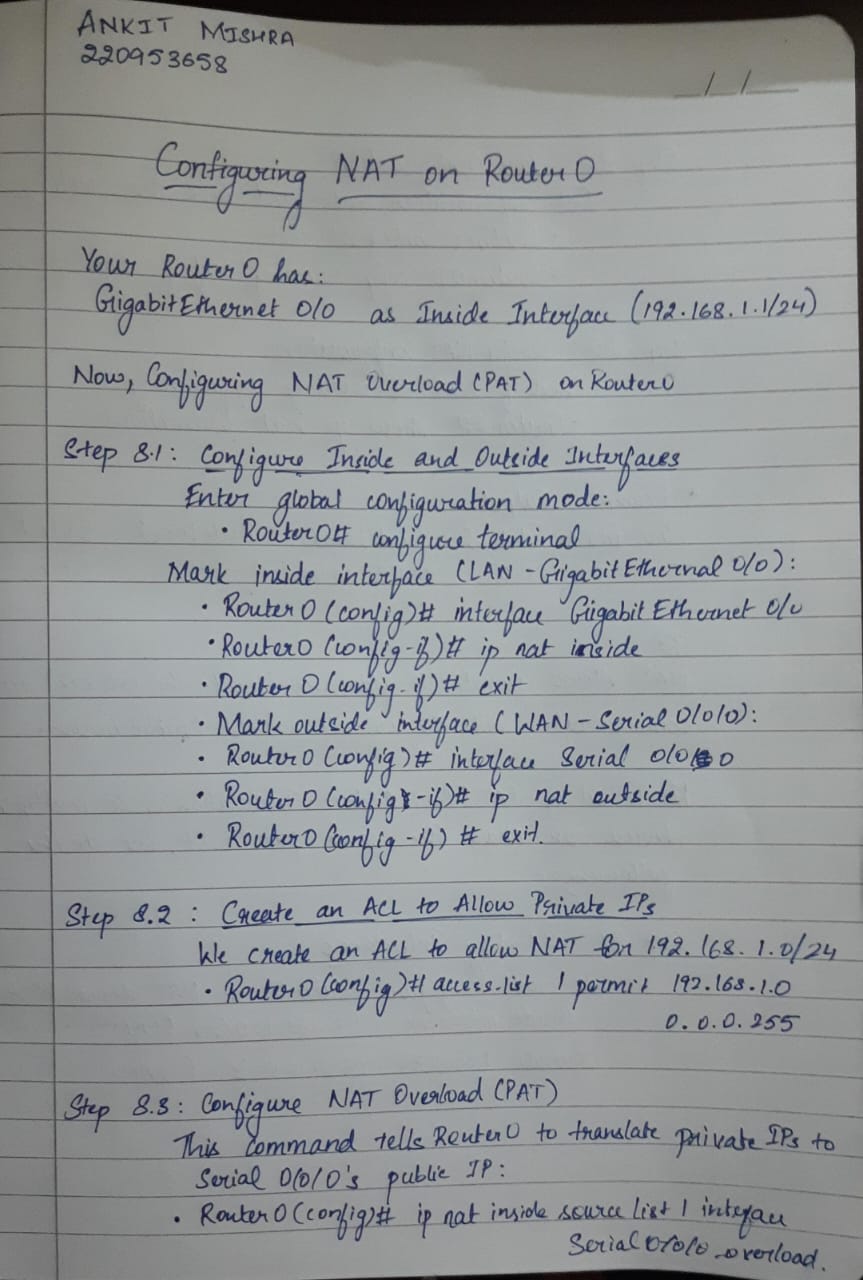 ANKIT MISHRA
220953658
/ /
Configuring NAT on Router0
Your Router0 has:
GigabitEthernet 0/0 as Inside Interface (192.168.1.1/24)
Now, Configuring NAT Overload (PAT) on Router0
Step 8.1: Configure Inside and Outside Interfaces
Enter global configuration mode:
• Router0# configure terminal
Mark inside interface (LAN - GigabitEthernal 0/0):
• Router0 (config)# interface Gigabit Ethernet 0/0
• Router0 (config-if)# ip nat inside
• Router0 (config-if)# exit
• Mark outside interface (WAN - Serial 0/0/0):
• Router0 (config)# interface Serial 0/0/0
• Router0 (config-if)# ip nat outside
• Router0 (config-if) # exit.
Step 8.2 : Create an ACL to Allow Private IPs
We create an ACL to allow NAT for 192.168.1.0/24
• Router0 (config)# access-list 1 permit 192.168.1.0
0.0.0.255
Step 8.3: Configure NAT Overload (PAT)
This command tells Router0 to translate private IPs to
Serial 0/0/0's public IP:
• Router0 (config)# ip nat inside source list 1 interface
Serial 0/0/0 overload.